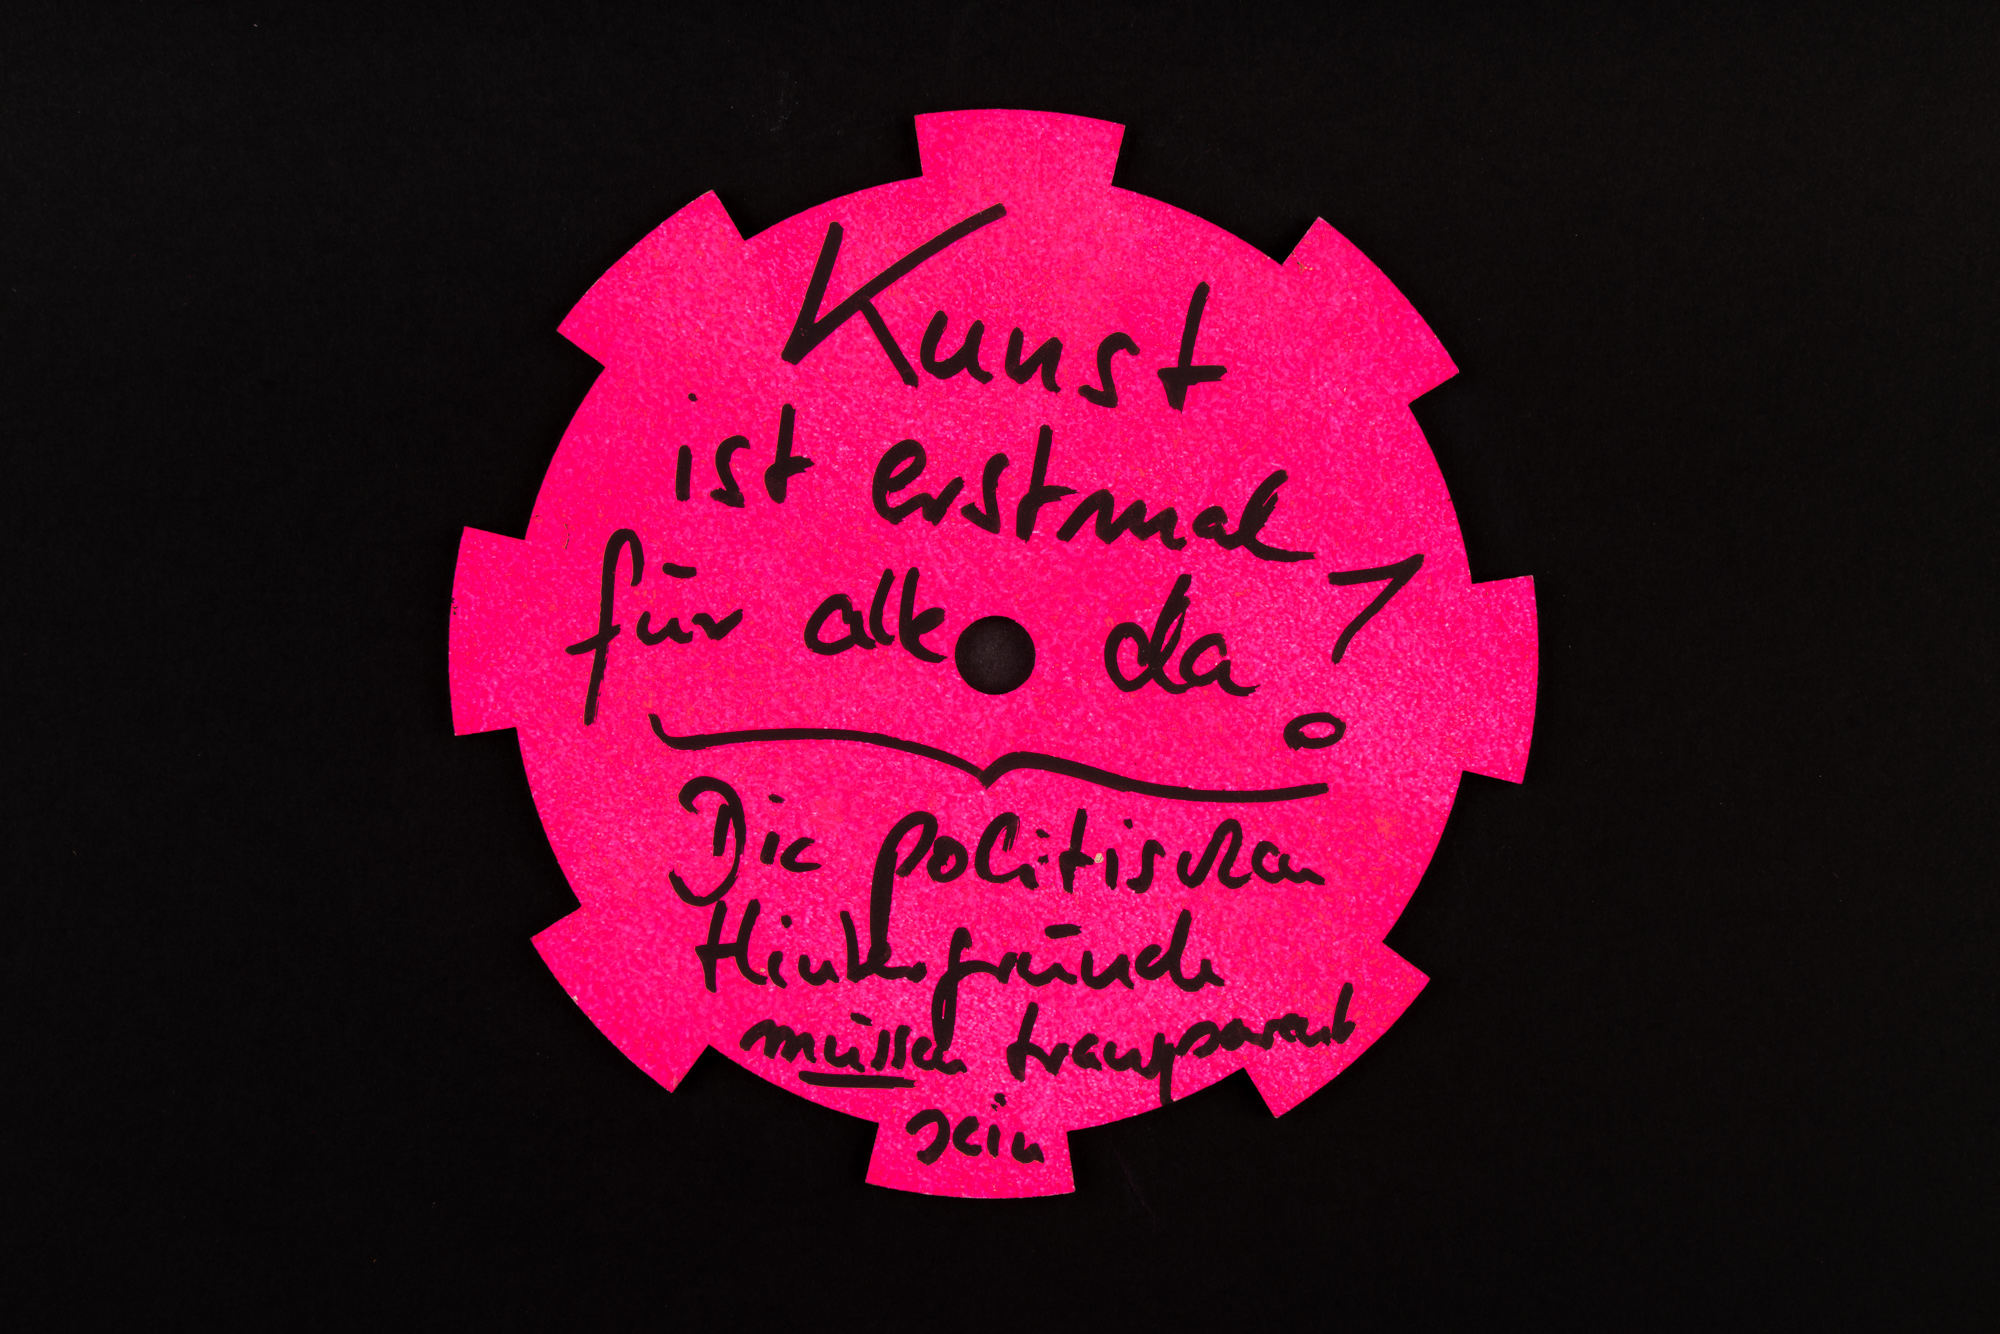 Kunst
ist erstmal
für alle da!
Die politischen
Hintergründe
müssen transparent
sein